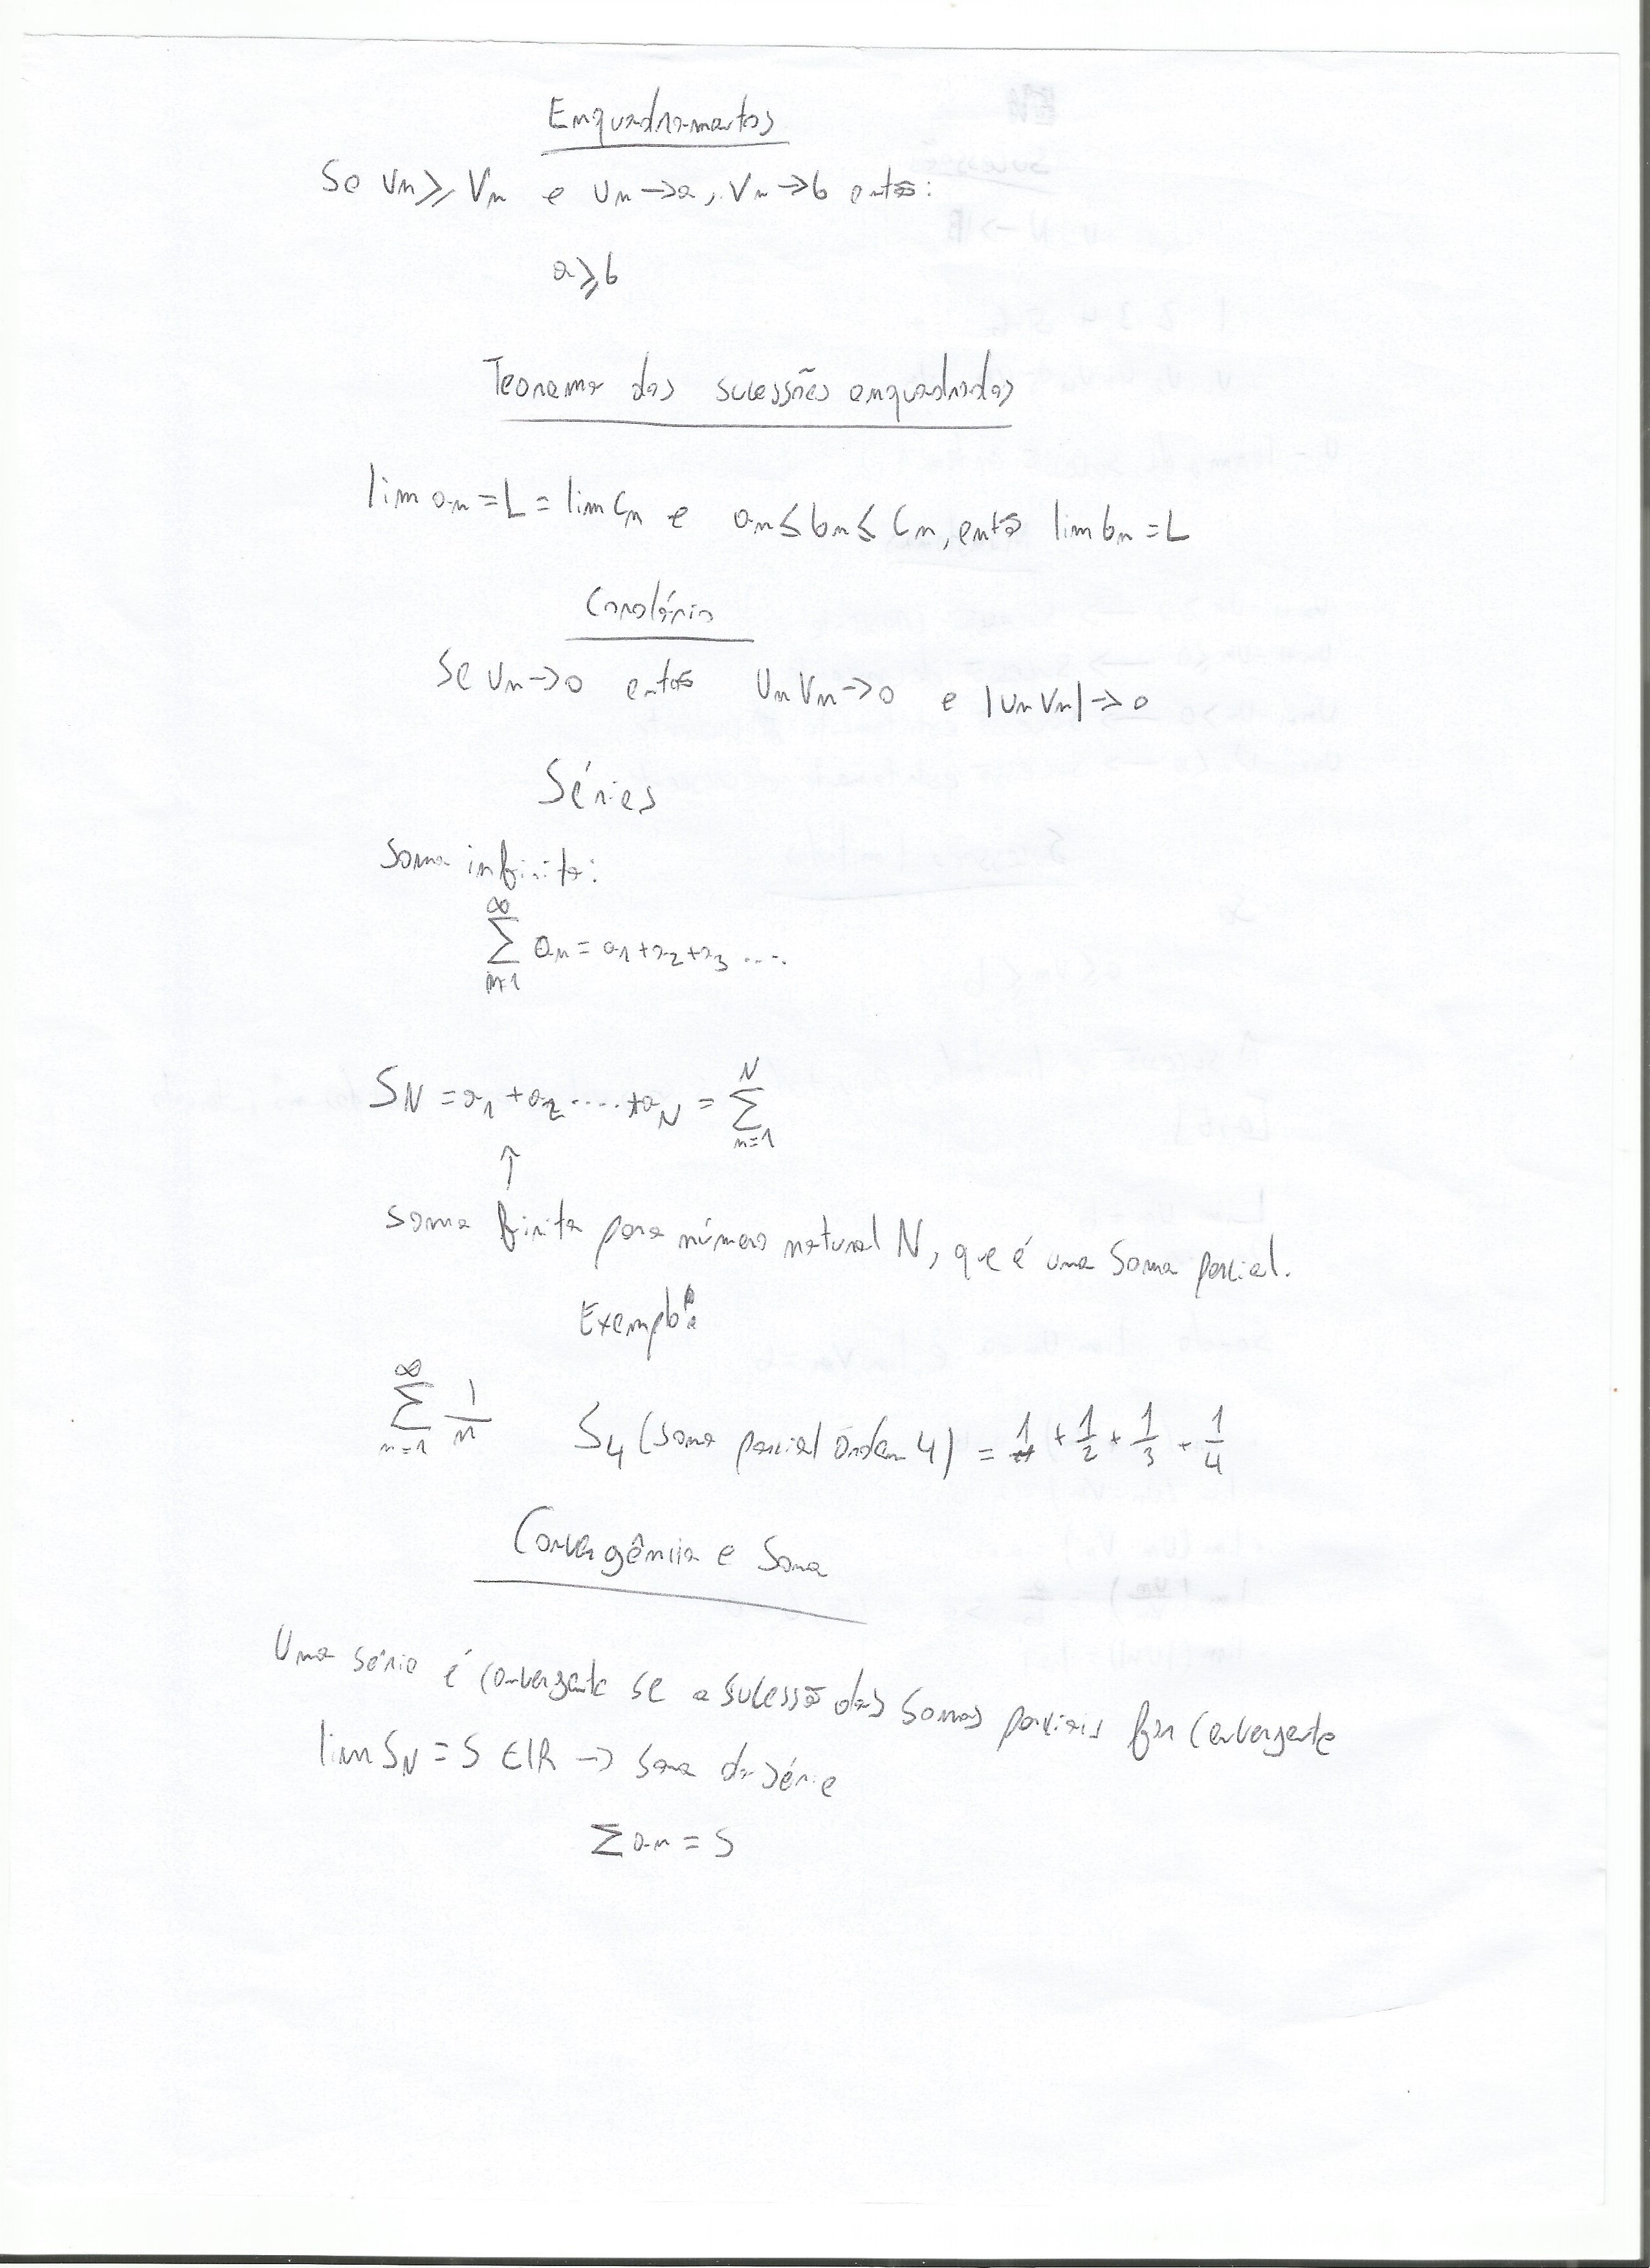 Enquadramentos
Se Un ≥ Vn e Un → a, Vn → b então:
a ≥ b
Teorema das sucessões enquadradas
lim an = L = lim Cn e an ≤ bn ≤ Cn, então lim bn = L
Corolário
Se Un → 0 então Un Vn → 0 e |Un Vn| → 0
Séries
Soma infinita:
∞
∑ an = a1 + a2 + a3 ....
n=1
N
SN = a1 + a2 ..... + aN = ∑
n=1
↑
soma finita para número natural N, que é uma soma parcial.
Exemplo:
∞
∑ 1/n S4 (soma parcial ordem 4) = 1 + 1/2 + 1/3 + 1/4
n=1
Convergência e Soma
Uma série é convergente se a sucessão das somas parciais for convergente
lim SN = S ∈ IR → soma da série
∑ an = S